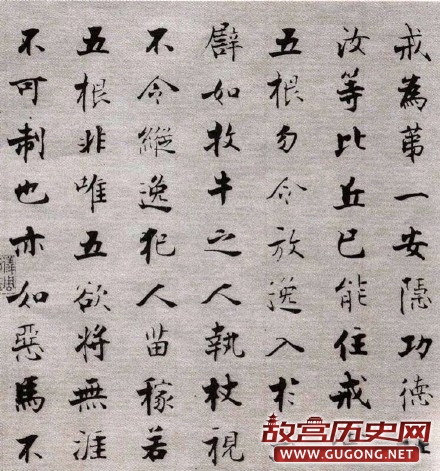 戒為第一安隱功德
汝等比丘已能住戒
五根勿令放逸入於
譬如牧牛之人執杖視
不令縱逸犯人苗稼若
五根非唯五欲將無涯
不可制也亦如惡馬不
故宫历史网
WWW.GUGONG.NET